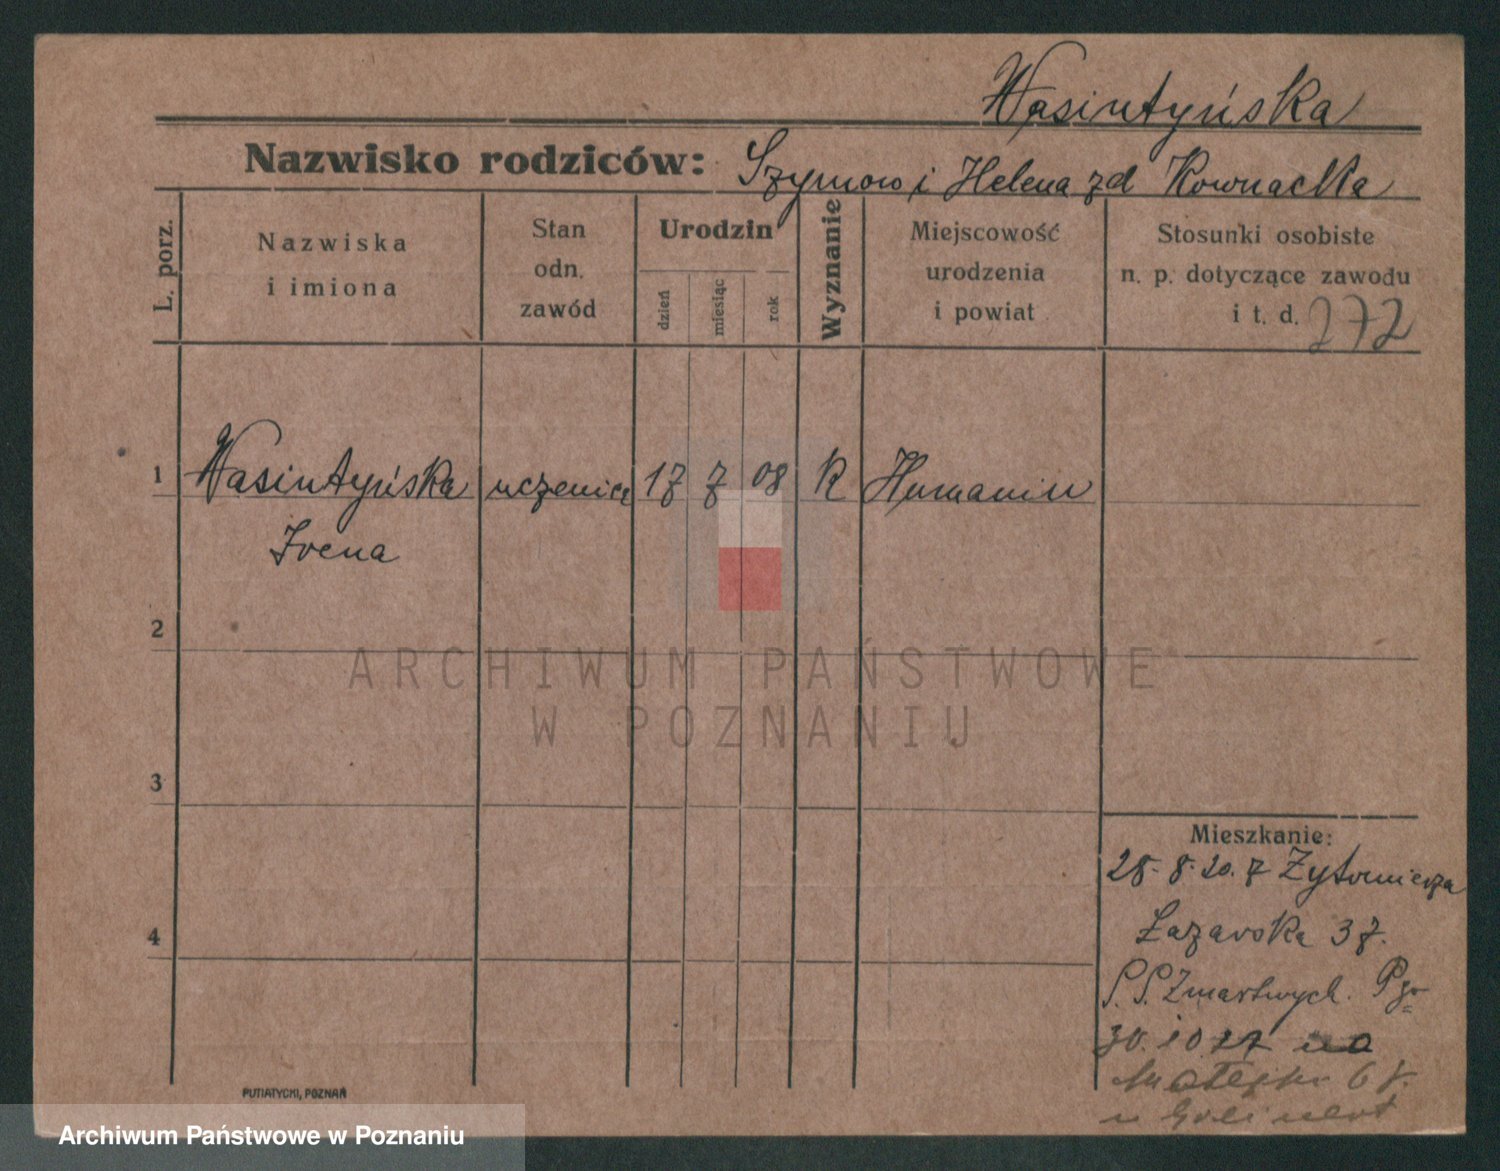 Wasintyńska
Nazwisko rodziców: Szymon i Helena zd Kownacka
L. porz.
Nazwiska
i imiona
Stan
odn.
zawód
Urodzin
dzień
miesiąc
rok
Wyznanie
Miejscowość
urodzenia
i powiat
Stosunki osobiste
n. p. dotyczące zawodu
i t. d. 272
1 Wasintyńska uczenica 17 7 08 K Humaniu
Irena
2
ARCHIWUM PAŃSTWOWE
W POZNANIU
3
Mieszkanie:
28. 8. 20. z Żytomierza
4
Łazarska 37.
S.S. Zmartwych.
30.10.27 na
Matejki 68.
u
PUTIATYCKI, POZNAŃ
Archiwum Państwowe w Poznaniu